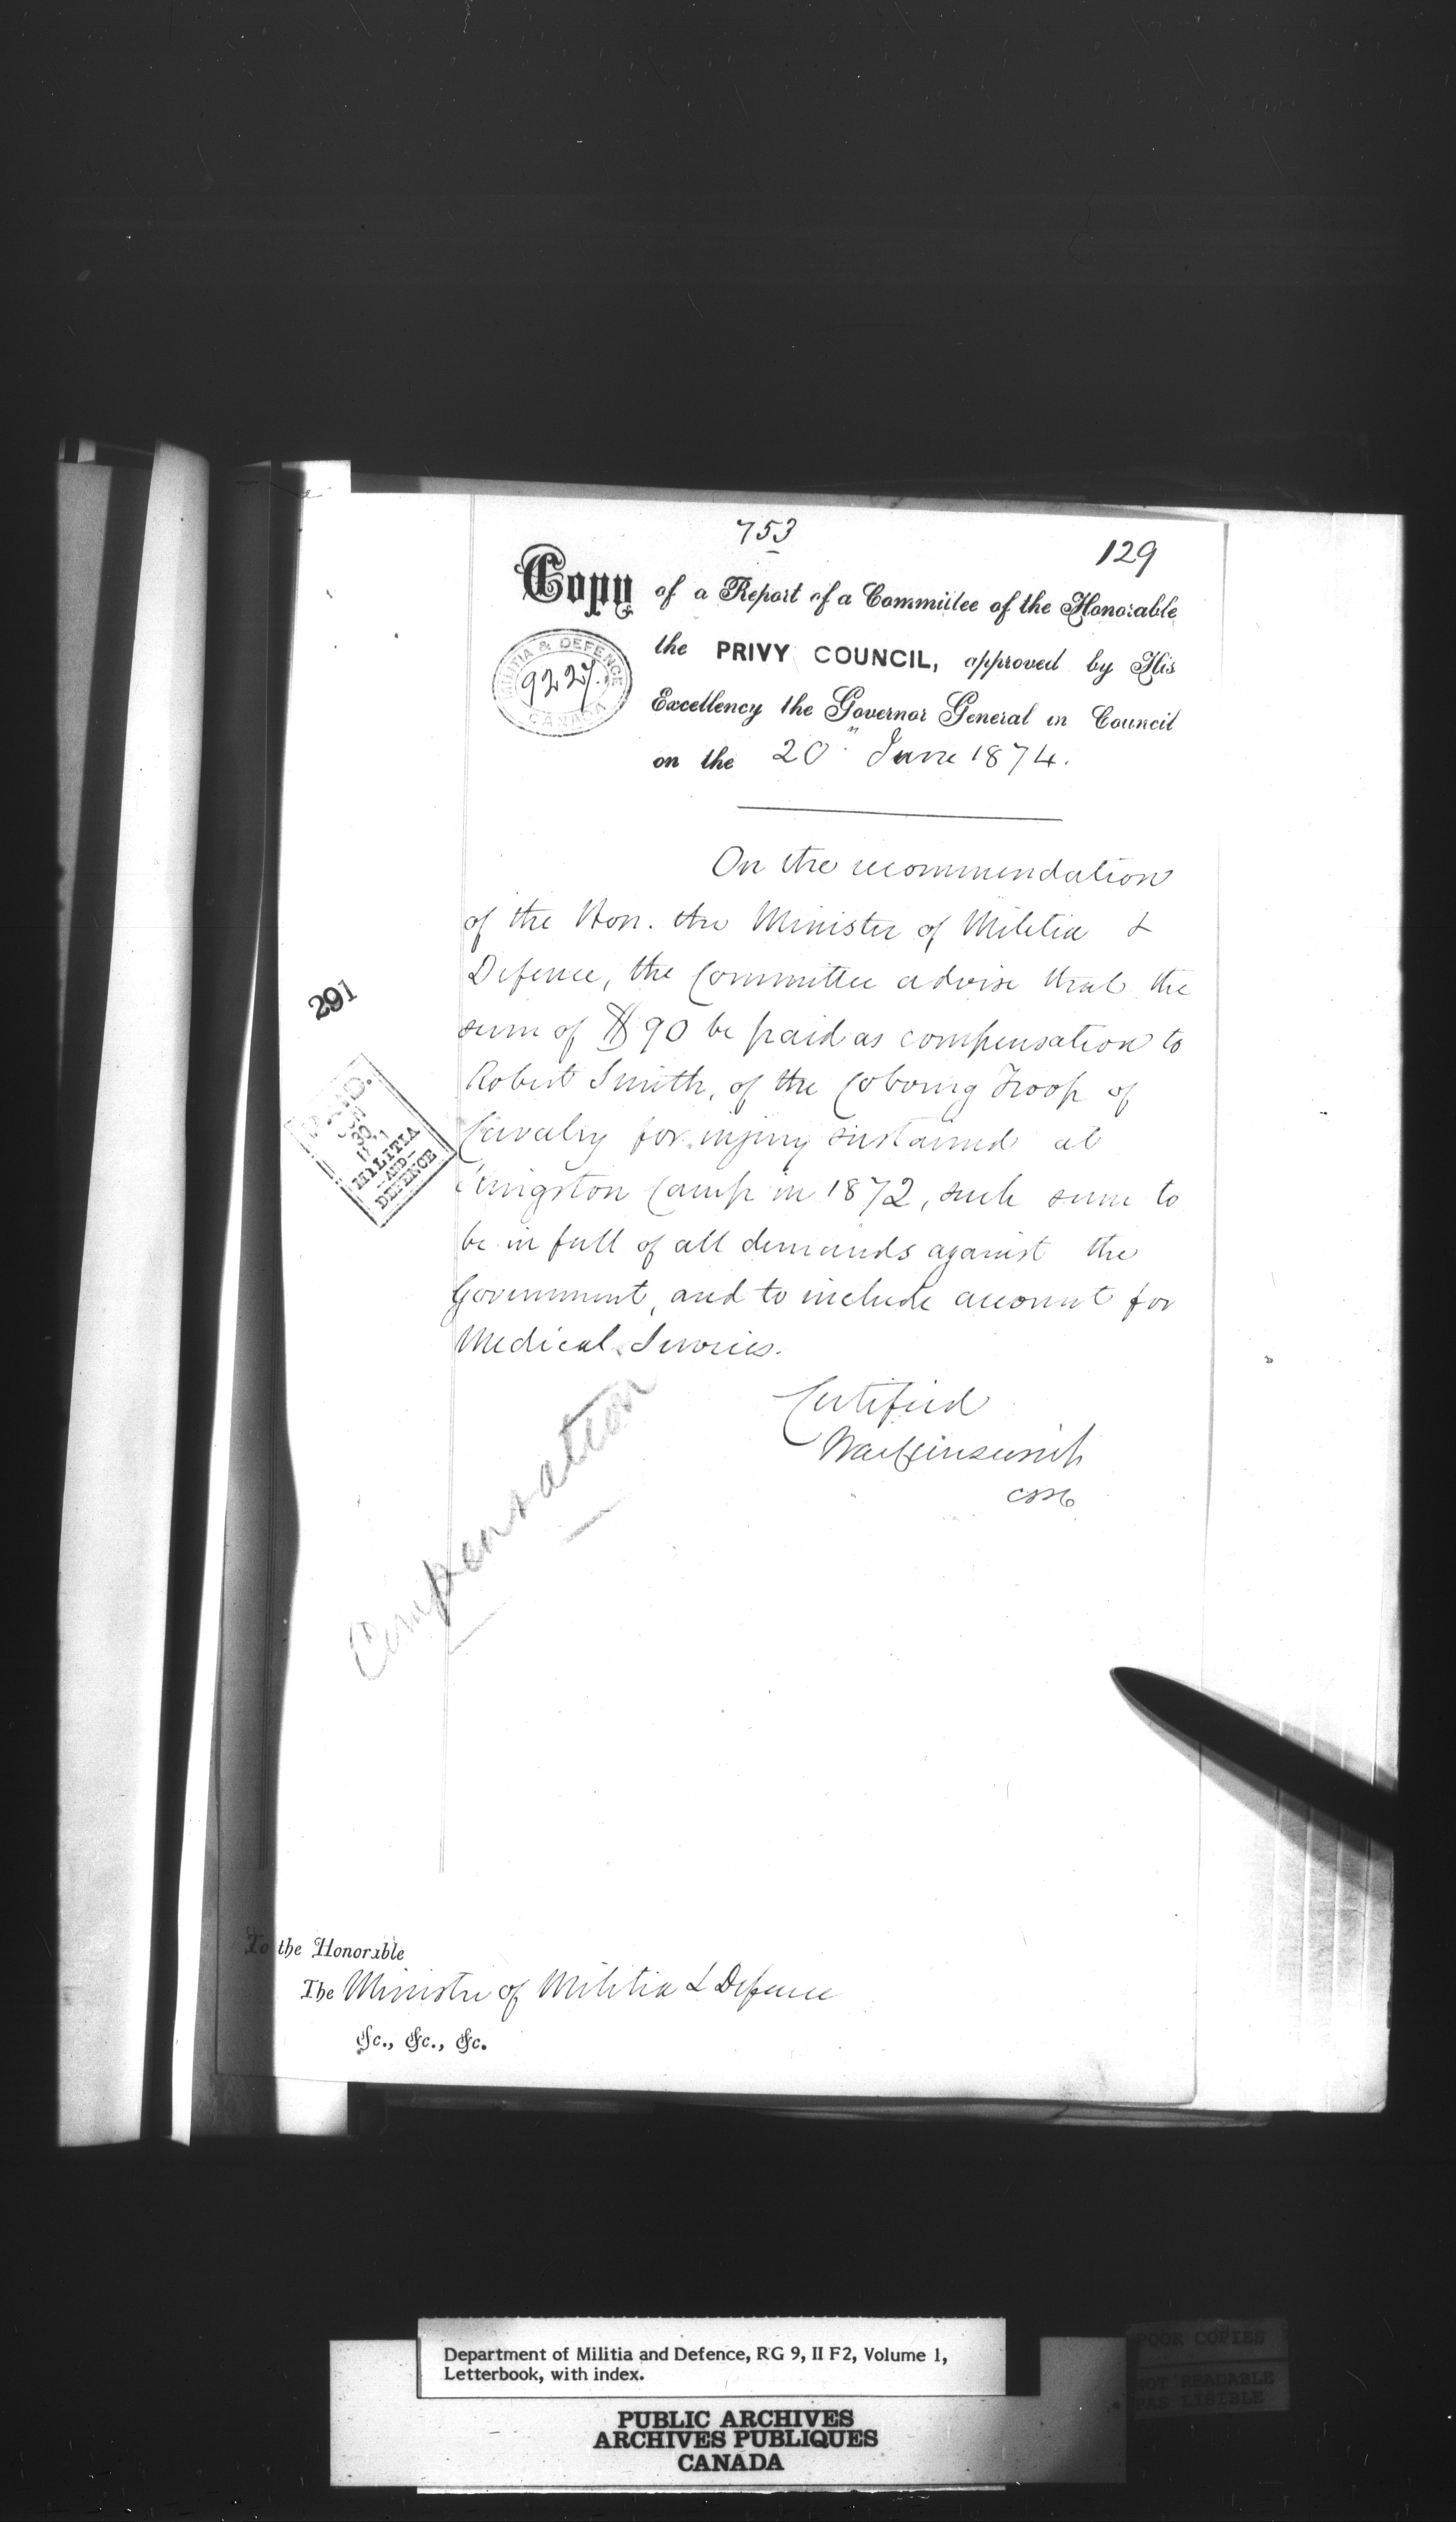 753
129
Copy of a Report of a Committee of the Honorable
the PRIVY COUNCIL, approved by His
Excellency the Governor General in Council
on the 20" June 1874.
MILITIA & DEFENCE
9227.
CANADA
On the recommendation
of the Hon. the Minister of Militia &
Defence, the Committee advise that the
sum of $90 be paid as compensation to
Robert Smith, of the Cobourg Troop of
Cavalry for injury sustained at
Kingston Camp in 1872, such sum to
be in full of all demands against the
Government, and to include account for
Medical Services.
291
30
MILITIA
-AND-
DEFENCE
Certified
Compensation
To the Honorable
The Minister of Militia & Defence
&c., &c., &c.
Department of Militia and Defence, RG 9, II F2, Volume 1,
Letterbook, with index.
PUBLIC ARCHIVES
ARCHIVES PUBLIQUES
CANADA
POOR COPIES
NOT READABLE
PAS LISIBLE